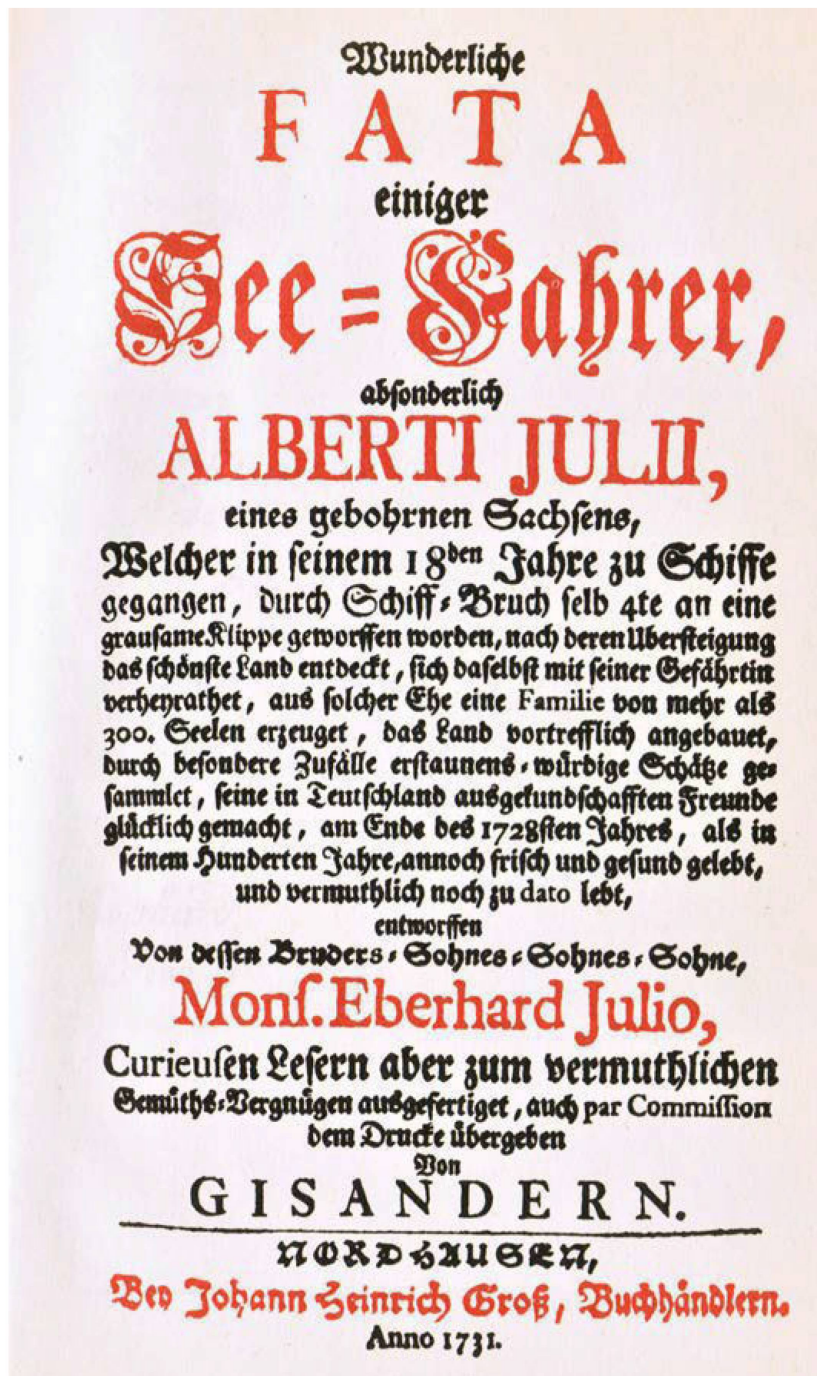 Wunderliche
FATA
einiger
See-Fahrer,
absonderlich
ALBERTI JULII,
eines gebohrnen Sachsens,
Welcher in seinem 18den Jahre zu Schiffe
gegangen, durch Schiff-Bruch selb 4te an eine
grausame Klippe geworffen worden, nach deren Ubersteigung
das schönste Land entdeckt, sich daselbst mit seiner Gefährtin
verheyrathet, aus solcher Ehe eine Familie von mehr als
300. Seelen erzeuget, das Land vortrefflich angebauet,
durch besondere Zufälle erstaunens-würdige Schätze ge-
sammlet, seine in Teutschland ausgekundschafften Freunde
glücklich gemacht, am Ende des 1728sten Jahres, als in
seinem Hunderten Jahre, annoch frisch und gesund gelebt,
und vermuthlich noch zu dato lebt,
entworffen
Von dessen Bruders-Sohnes-Sohnes-Sohne,
Monſ. Eberhard Julio,
Curieusen Lesern aber zum vermuthlichen
Gemüths-Vergnügen ausgefertiget, auch par Commission
dem Drucke übergeben
Von
GISANDERN.
NORDHAUSEN,
Bey Johann Heinrich Groß, Buchhändlern.
Anno 1731.